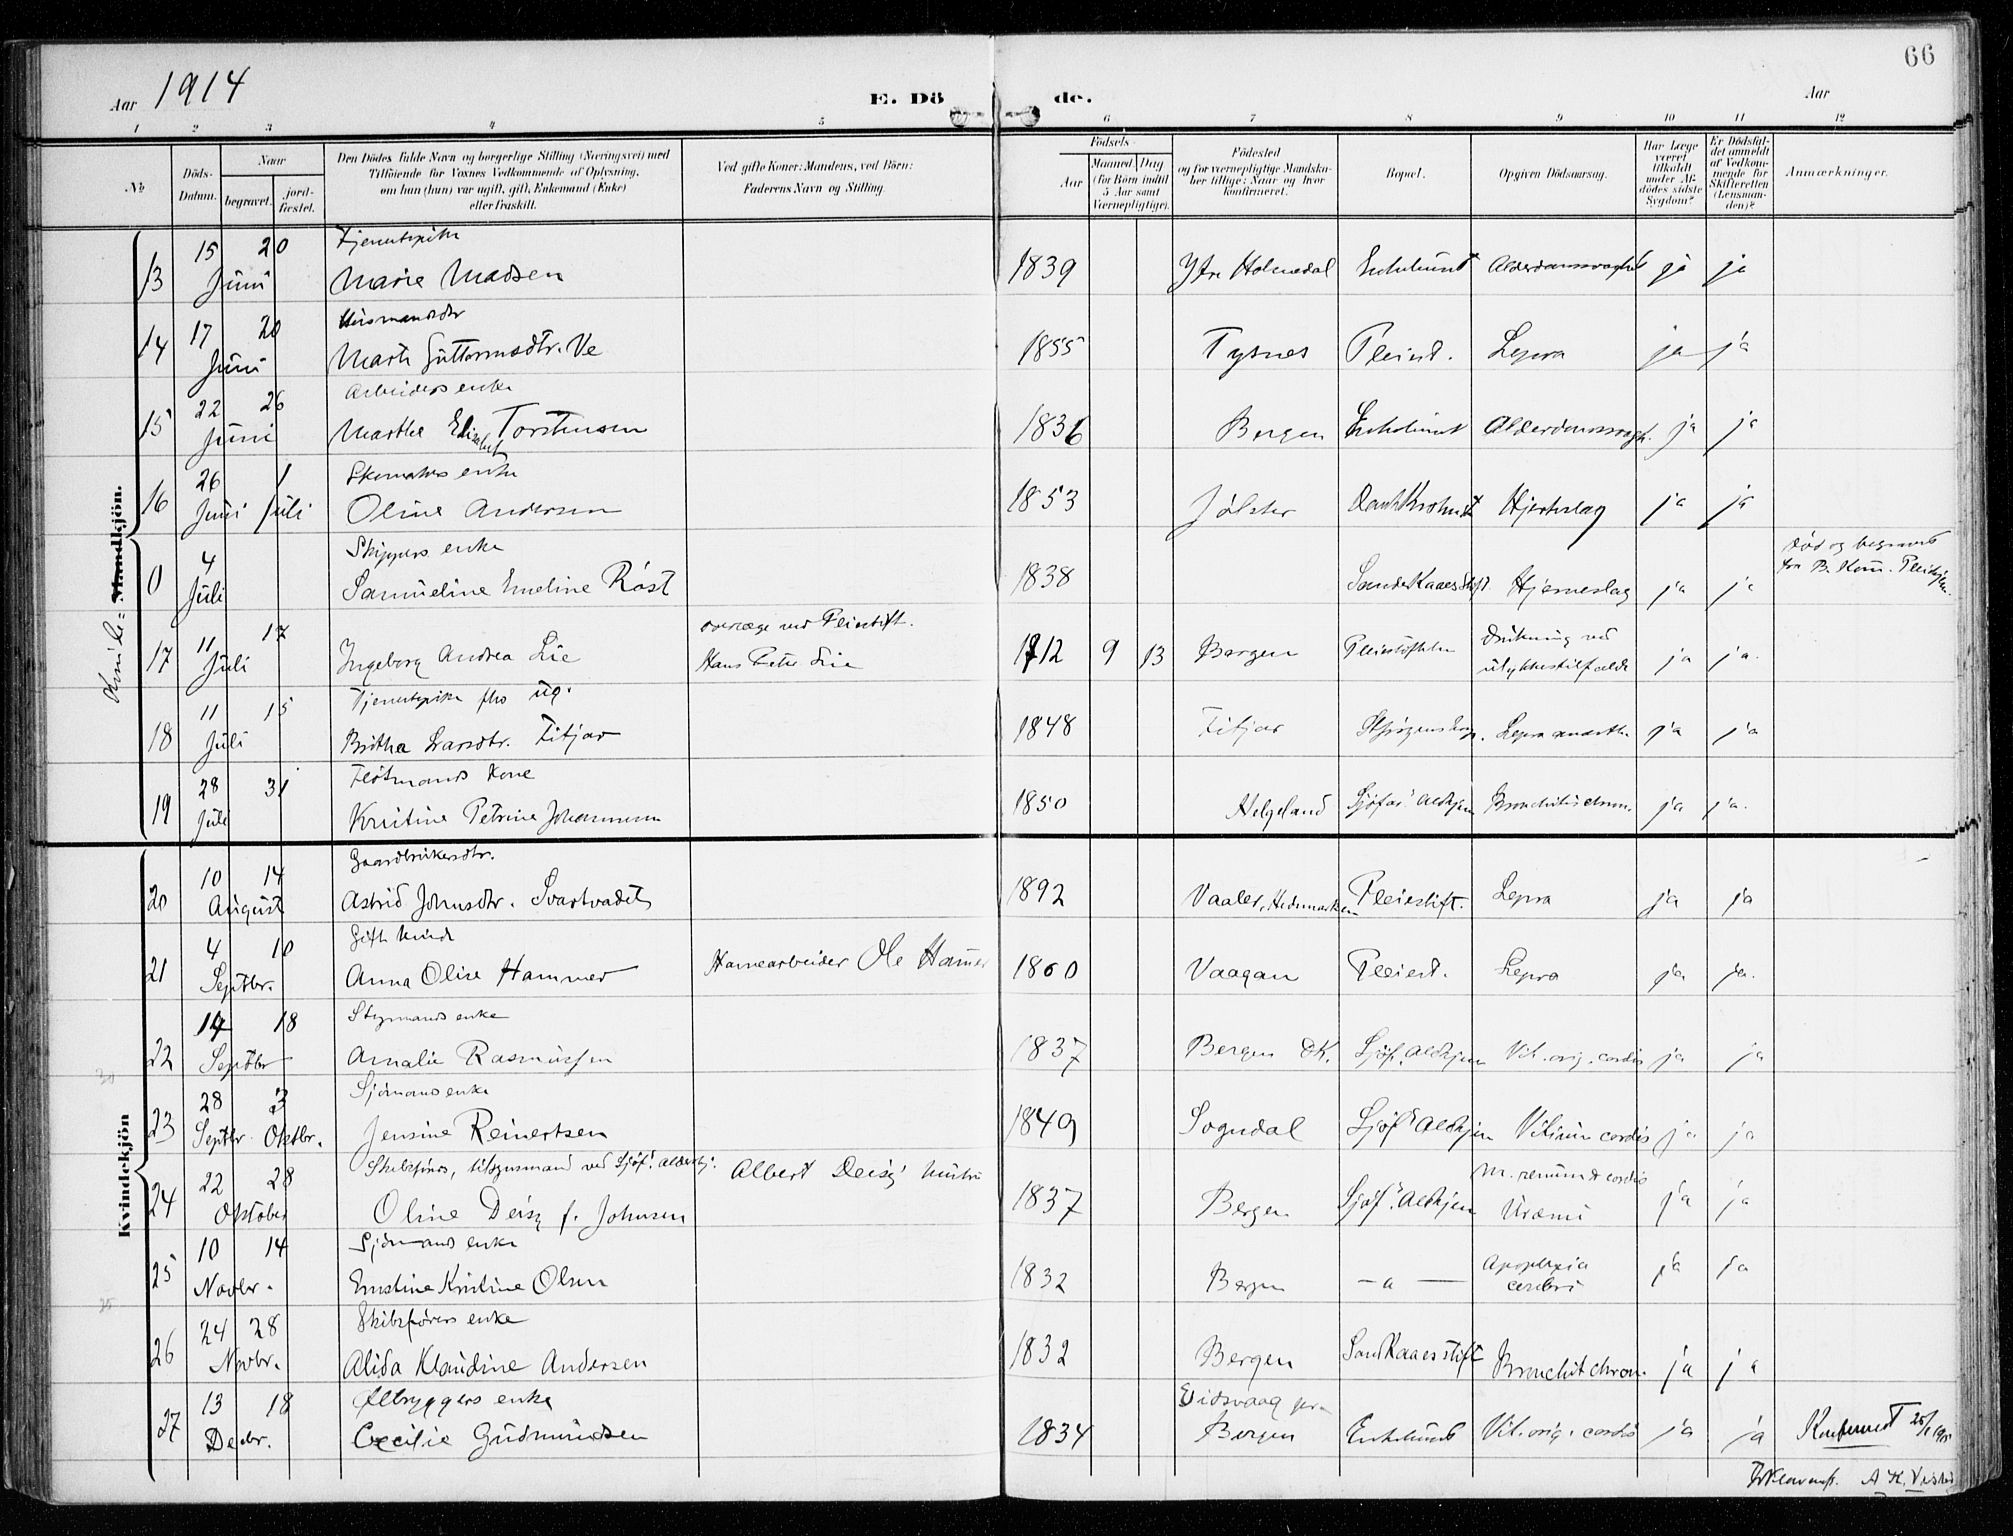 66
Aar 1914
E. Dö de.
Aar
1 2 3 4 5 6 7 8 9 10 11 12
No
Döds-Datum.
Naar
begravet.
jord-fæstet.
Den Dödes fulde Navn og borgerlige Stilling (Næringsvei) med
Tilföiende for Voxnes Vedkommende af Oplysning,
om han (hun) var ugift, gift, Enkemand (Enke)
eller fraskilt.
Ved gifte Koner: Mandens, ved Börn:
Faderens Navn og Stilling.
Födsels-
Aar
Maaned Dag
(for Börn indtil
5 Aar samt
Værnepligtige).
Födested
og for værnepligtige Mandskaber tillige: Naar og hvor
konfirmeret.
Bopæl.
Opgiven Dödsaarsag.
Har Læge
været
tilkaldt
under Afdödes sidste
Sygdom?
Er Dödsfaldet anmeldt
af Vedkommende for
Skifteretten
(Lensmanden)?
Anmærkninger.
Mandkjön.
Kvindekjön
Tjenestepike
13 15 20 Juni Marie Madsen 1839 Ytre Holmedal Enkehuset Alderdomssvaghet ja ja
Husmandsdtr
14 17 20 Juni Marte Guttormsdtr. Ve 1855 Tysnes Pleiest. Lepra ja ja
Arbeiders enke
15 22 26 Juni Marthe Elisabet Torstensen 1836 Bergen Enkehuset Alderdomssvagh. ja ja
Skomakers enke
16 26 Juni 1 Juli Oline Andersen 1853 Jölster Hjerteslag ja ja
Skippers enke
0 4 Juli Samueline Emeline Röst 1838 Hjerneslag ja ja
Död og begravet
fra B. Kom. Pleiehjem.
overlæge ved Pleiestift.
17 11 17 Juli Ingeborg Andrea Lie Hans Peter Lie 1912 9 13 Bergen Drukning ved
ulykkestilfælde ja ja.
Tjenestepike ug.
18 11 15 Juli Britha Larsdtr. Fitjar 1848 Fitjar Lepra ja ja
Flötmands Kone
19 28 31 Juli Kristine Petrine Johannesen 1850 Helgeland Sjöfas' Aldhjem Bronchitis chron. ja ja.
Gaardbrukersdtr.
20 10 14 August Astrid Johnsdtr. Svartvadet 1892 Vaaler, Hedemarken Pleiestift. Lepra ja ja
Gift kvinde
21 4 10 Septbr. Anna Olise Hammer Havnearbeider Ole Hammer 1860 Vaagan Pleiest. Lepra ja ja.
Styrmands enke
22 14 18 Septbr Amalie Rasmussen 1837 Bergen DK. Sjöf. Aldhjem Vit. org. cordis ja ja
Sjömands enke
23 28 Septbr. 3 Oktbr. Jensine Reinertsen 1849 Sogndal Sjöf. Aldhjem Vitium cordis ja ja
ved Sjöf. Aldershj.
24 22 28 Oktober Oline Deisz f. Johnsen Albert Deisz 1837 Bergen Sjöf. Aldhjem M. renum & cordis
Uræmi ja ja
Sjömands enke
25 10 14 Novbr. Ernstine Kristine Olsen 1832 Bergen — a — Apoplexia
cerebri ja ja
Skibsförers enke
26 24 28 Novbr. Alida Klaudine Andersen 1832 Bergen Bronchit chron. ja ja
Ølbryggers enke
27 13 18 Decbr. Cecilie Gudmundsen 1834 Eidsvaag
Bergen Enkehuset Vit. org. cordis ja ja